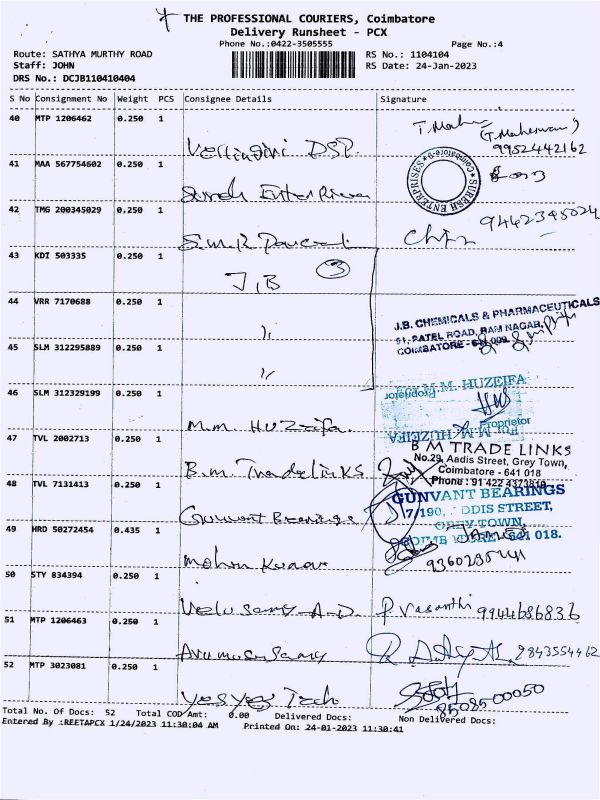 THE PROFESSIONAL COURIERS, Coimbatore
Delivery Runsheet - PCX
Phone No.:0422-3505555
Page No.:4
Route: SATHYA MURTHY ROAD
RS No.: 1104104
Staff: JOHN
RS Date: 24-Jan-2023
DRS No.: DCJB110410404
S No Consignment No Weight PCS Consignee Details Signature
40 MTP 1206462 0.250 1
DSP.
(T.Maheswari)
9952442162
41 MAA 567754602 0.250 1
Suresh Enterprises
SURESH ENTERPRISES
Coimbatore-9
42 TMG 200345029 0.250 1
S.M.R
9442345024
43 KDI 503335 0.250 1
J.B 3
44 VRR 7170688 0.250 1
J.B. CHEMICALS & PHARMACEUTICALS
91, PATEL ROAD, RAM NAGAR,
COIMBATORE - 641 009.
45 SLM 312295889 0.250 1
46 SLM 312329199 0.250 1
M.M. HUZEIFA
Proprietor
M.M. Huzeifa.
Proprietor
For M.M. HUZEIFA
47 TVL 2002713 0.250 1
B.M. Tradelinks
B M TRADE LINKS
No.29, Aadis Street, Grey Town,
Coimbatore - 641 018
Phone : 91 422 4373810
48 TVL 7131413 0.250 1
Gunvant Bearings
GUNVANT BEARINGS
7/190, DDIS STREET,
GREY TOWN,
COIMBATORE - 641 018.
49 HRD 50272454 0.435 1
Mohan Kumar
9360235441
50 STY 834394 0.250 1
Velusamy A.D. P. Vasanthi 9944686836
51 MTP 1206463 0.250 1
Arumugasamy 9843554462
52 MTP 3023081 0.250 1
Yes Yes Tech
85085 00050
Total No. Of Docs: 52 Total COD Amt: 0.00 Delivered Docs: Non Delivered Docs:
Entered By :REETAPCX 1/24/2023 11:30:04 AM Printed On: 24-01-2023 11:30:41